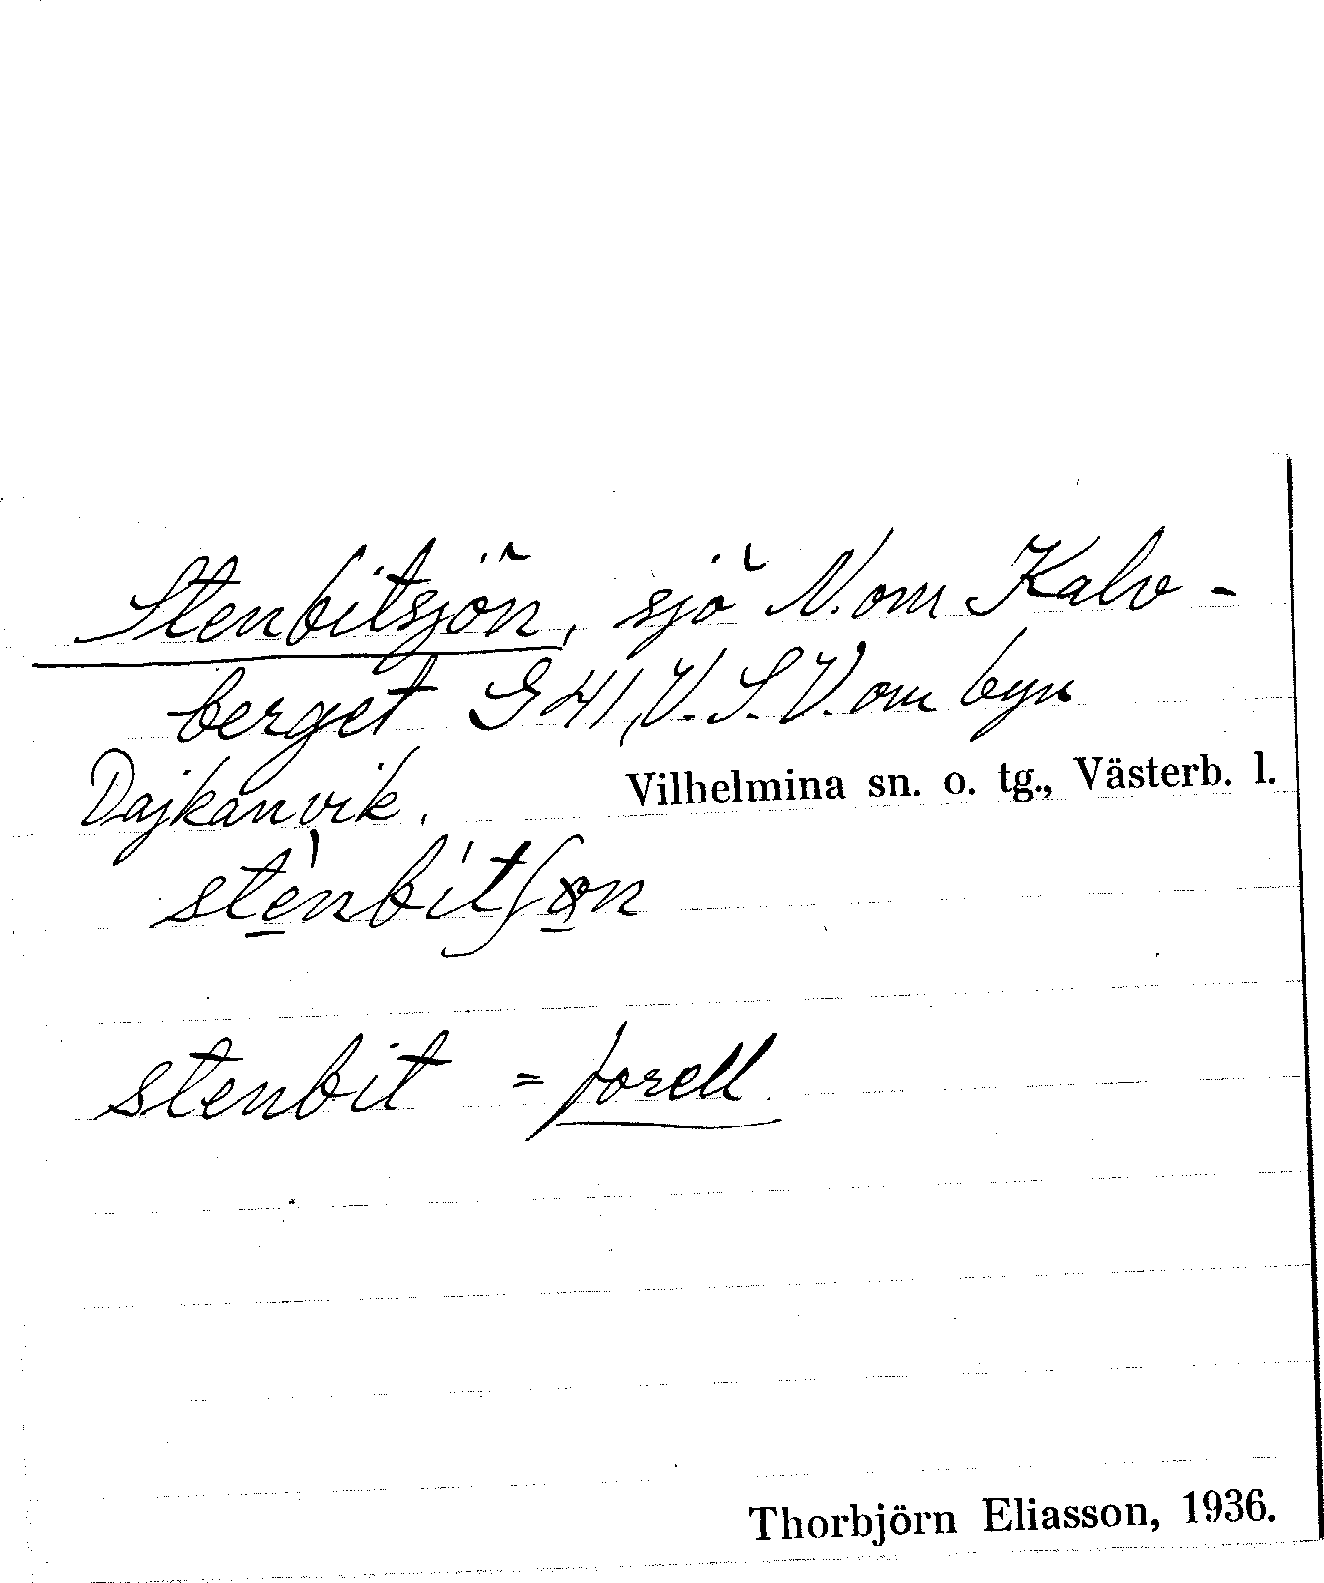 Stenbitsjön, sjö N. om Kalv-
berget G 41, V. S. V. om byn
Dajkanvik. Vilhelmina sn. o. tg., Västerb. l.
stenbit = forell
Thorbjörn Eliasson, 1936.